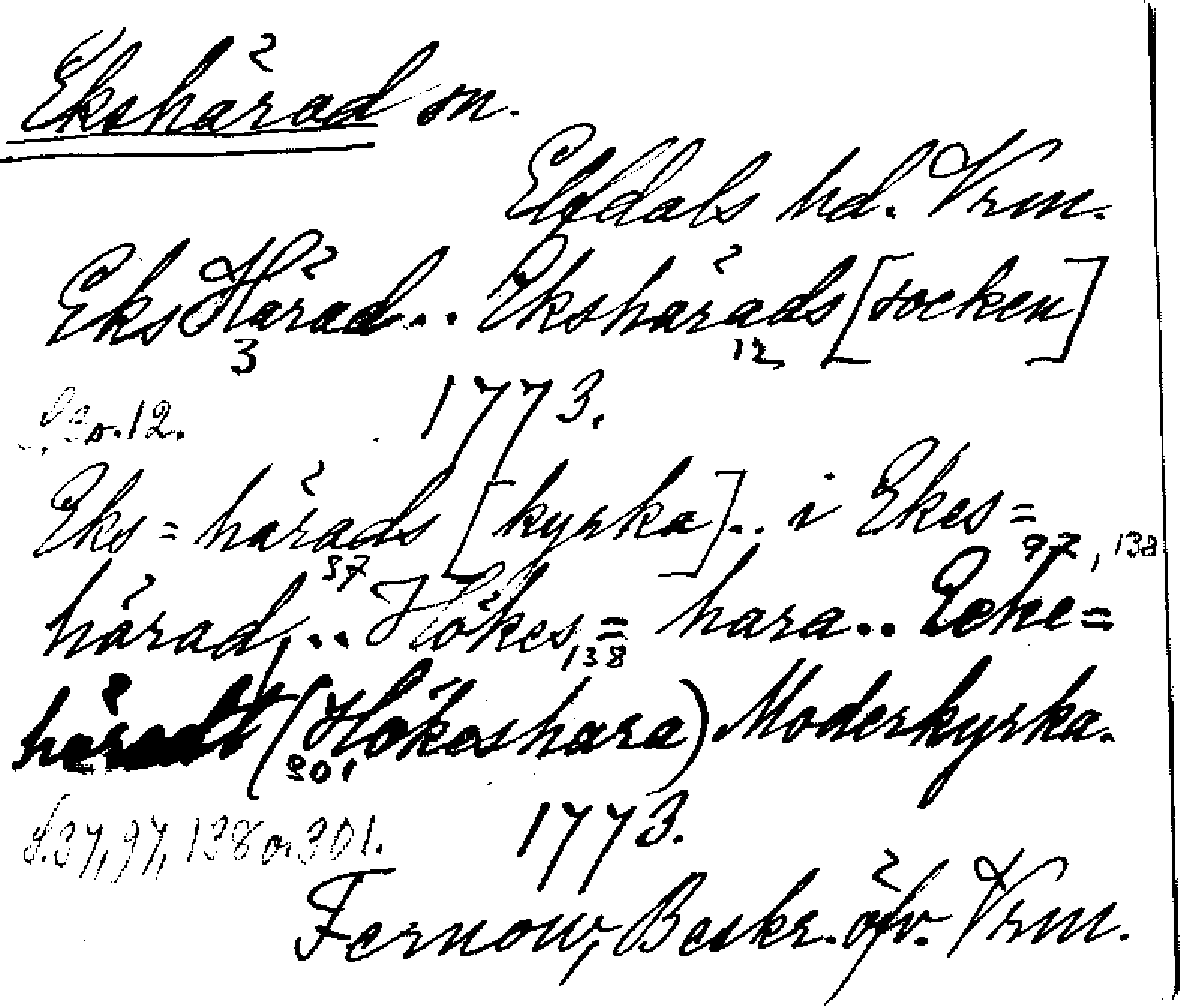 Ekshärad sn.
Elfdals hd. Vrm.
Eks Härad.. Ekshärads [socken]
3 12
S. 3 o. 12. 1773.
Eks=härads [kyrka].. i Ekes=
37 97, 138
härad,.. Hökes= hara.. Ecke=
138
häradt (Hökeshara) Moderkyrka.
301
S. 37, 97, 138 o. 301. 1773.
Fernow, Beskr. öfv. Vrm.